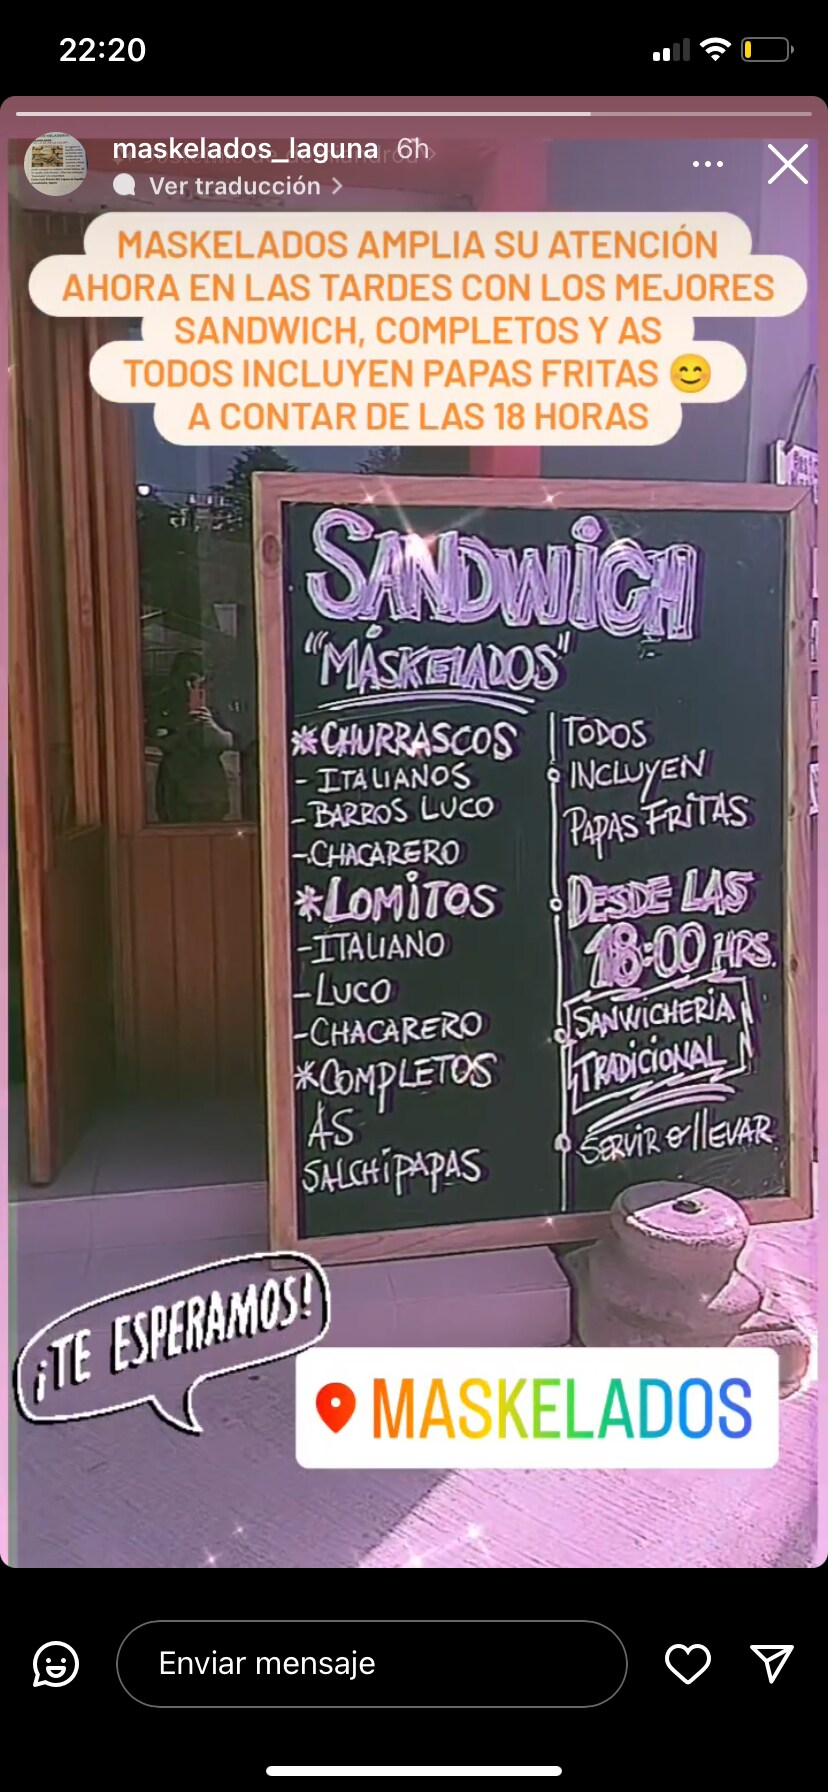 22:20
maskelados_laguna 6h
Ver traducción
MASKELADOS AMPLIA SU ATENCIÓN
AHORA EN LAS TARDES CON LOS MEJORES
SANDWICH, COMPLETOS Y AS
TODOS INCLUYEN PAPAS FRITAS 😊
A CONTAR DE LAS 18 HORAS
SANDWICH
"MÁSKELADOS"
*CHURRASCOS
- ITALIANOS
- BARROS LUCO
-CHACARERO
*LOMITOS
-ITALIANO
-LUCO
-CHACARERO
*COMPLETOS
AS
SALCHIPAPAS
TODOS
INCLUYEN
PAPAS FRITAS
DESDE LAS
18:00 HRS.
SANWICHERIA
TRADICIONAL
SERVIR O LLEVAR
¡TE ESPERAMOS!
MASKELADOS
Enviar mensaje